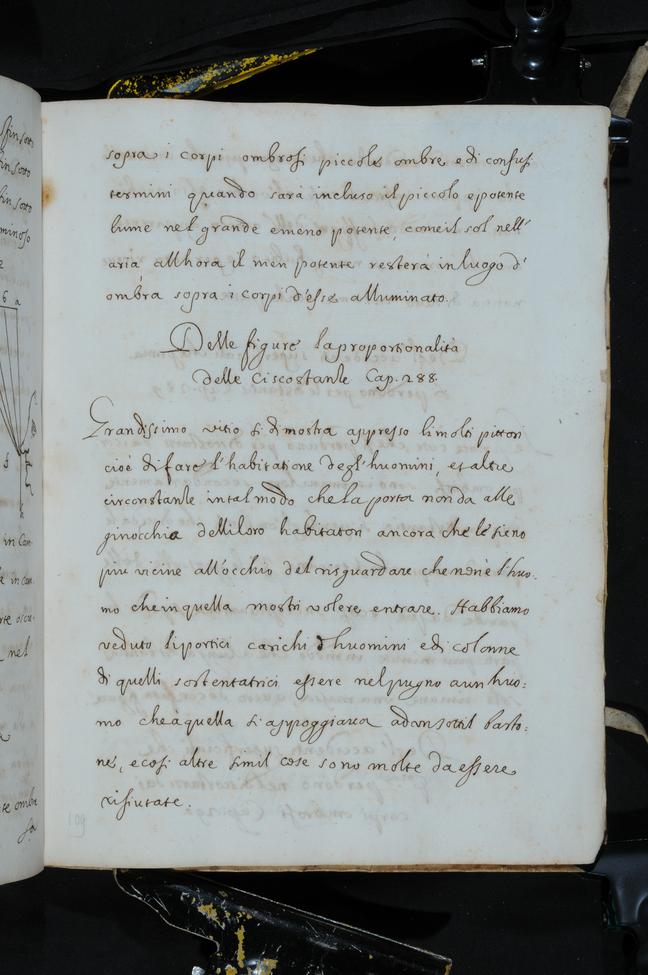 sopra i corpi ombrosi piccole ombre e di confusi
termini quando sarà incluso il piccolo e potente
lume nel grande e meno potente, come il sol nell'
aria, allhora il men potente resterà in luogo d'
ombra sopra i corpi d'esse alluminato.
Delle figure la proportionalità
delle Circostanze Cap. 288.
Grandissimo vitio si dimostra appresso li molti pittori
cioè di fare l'habitatione degl'huomini, et altre
circonstanze in tal modo che la porta non da alle
ginocchia delli loro habitatori ancora che le sieno
più vicine all'occhio del risguardare che non è l'huo-
mo che in quella mostri volere entrare. Habbiamo
veduto li portici carichi d'huomini e di colonne
di quelli sostentatrici essere nel pugno a un huo-
mo che à quella si appoggiava ad un sottil basto-
ne, e così altre simil cose sono molte da essere
rifiutate.
109